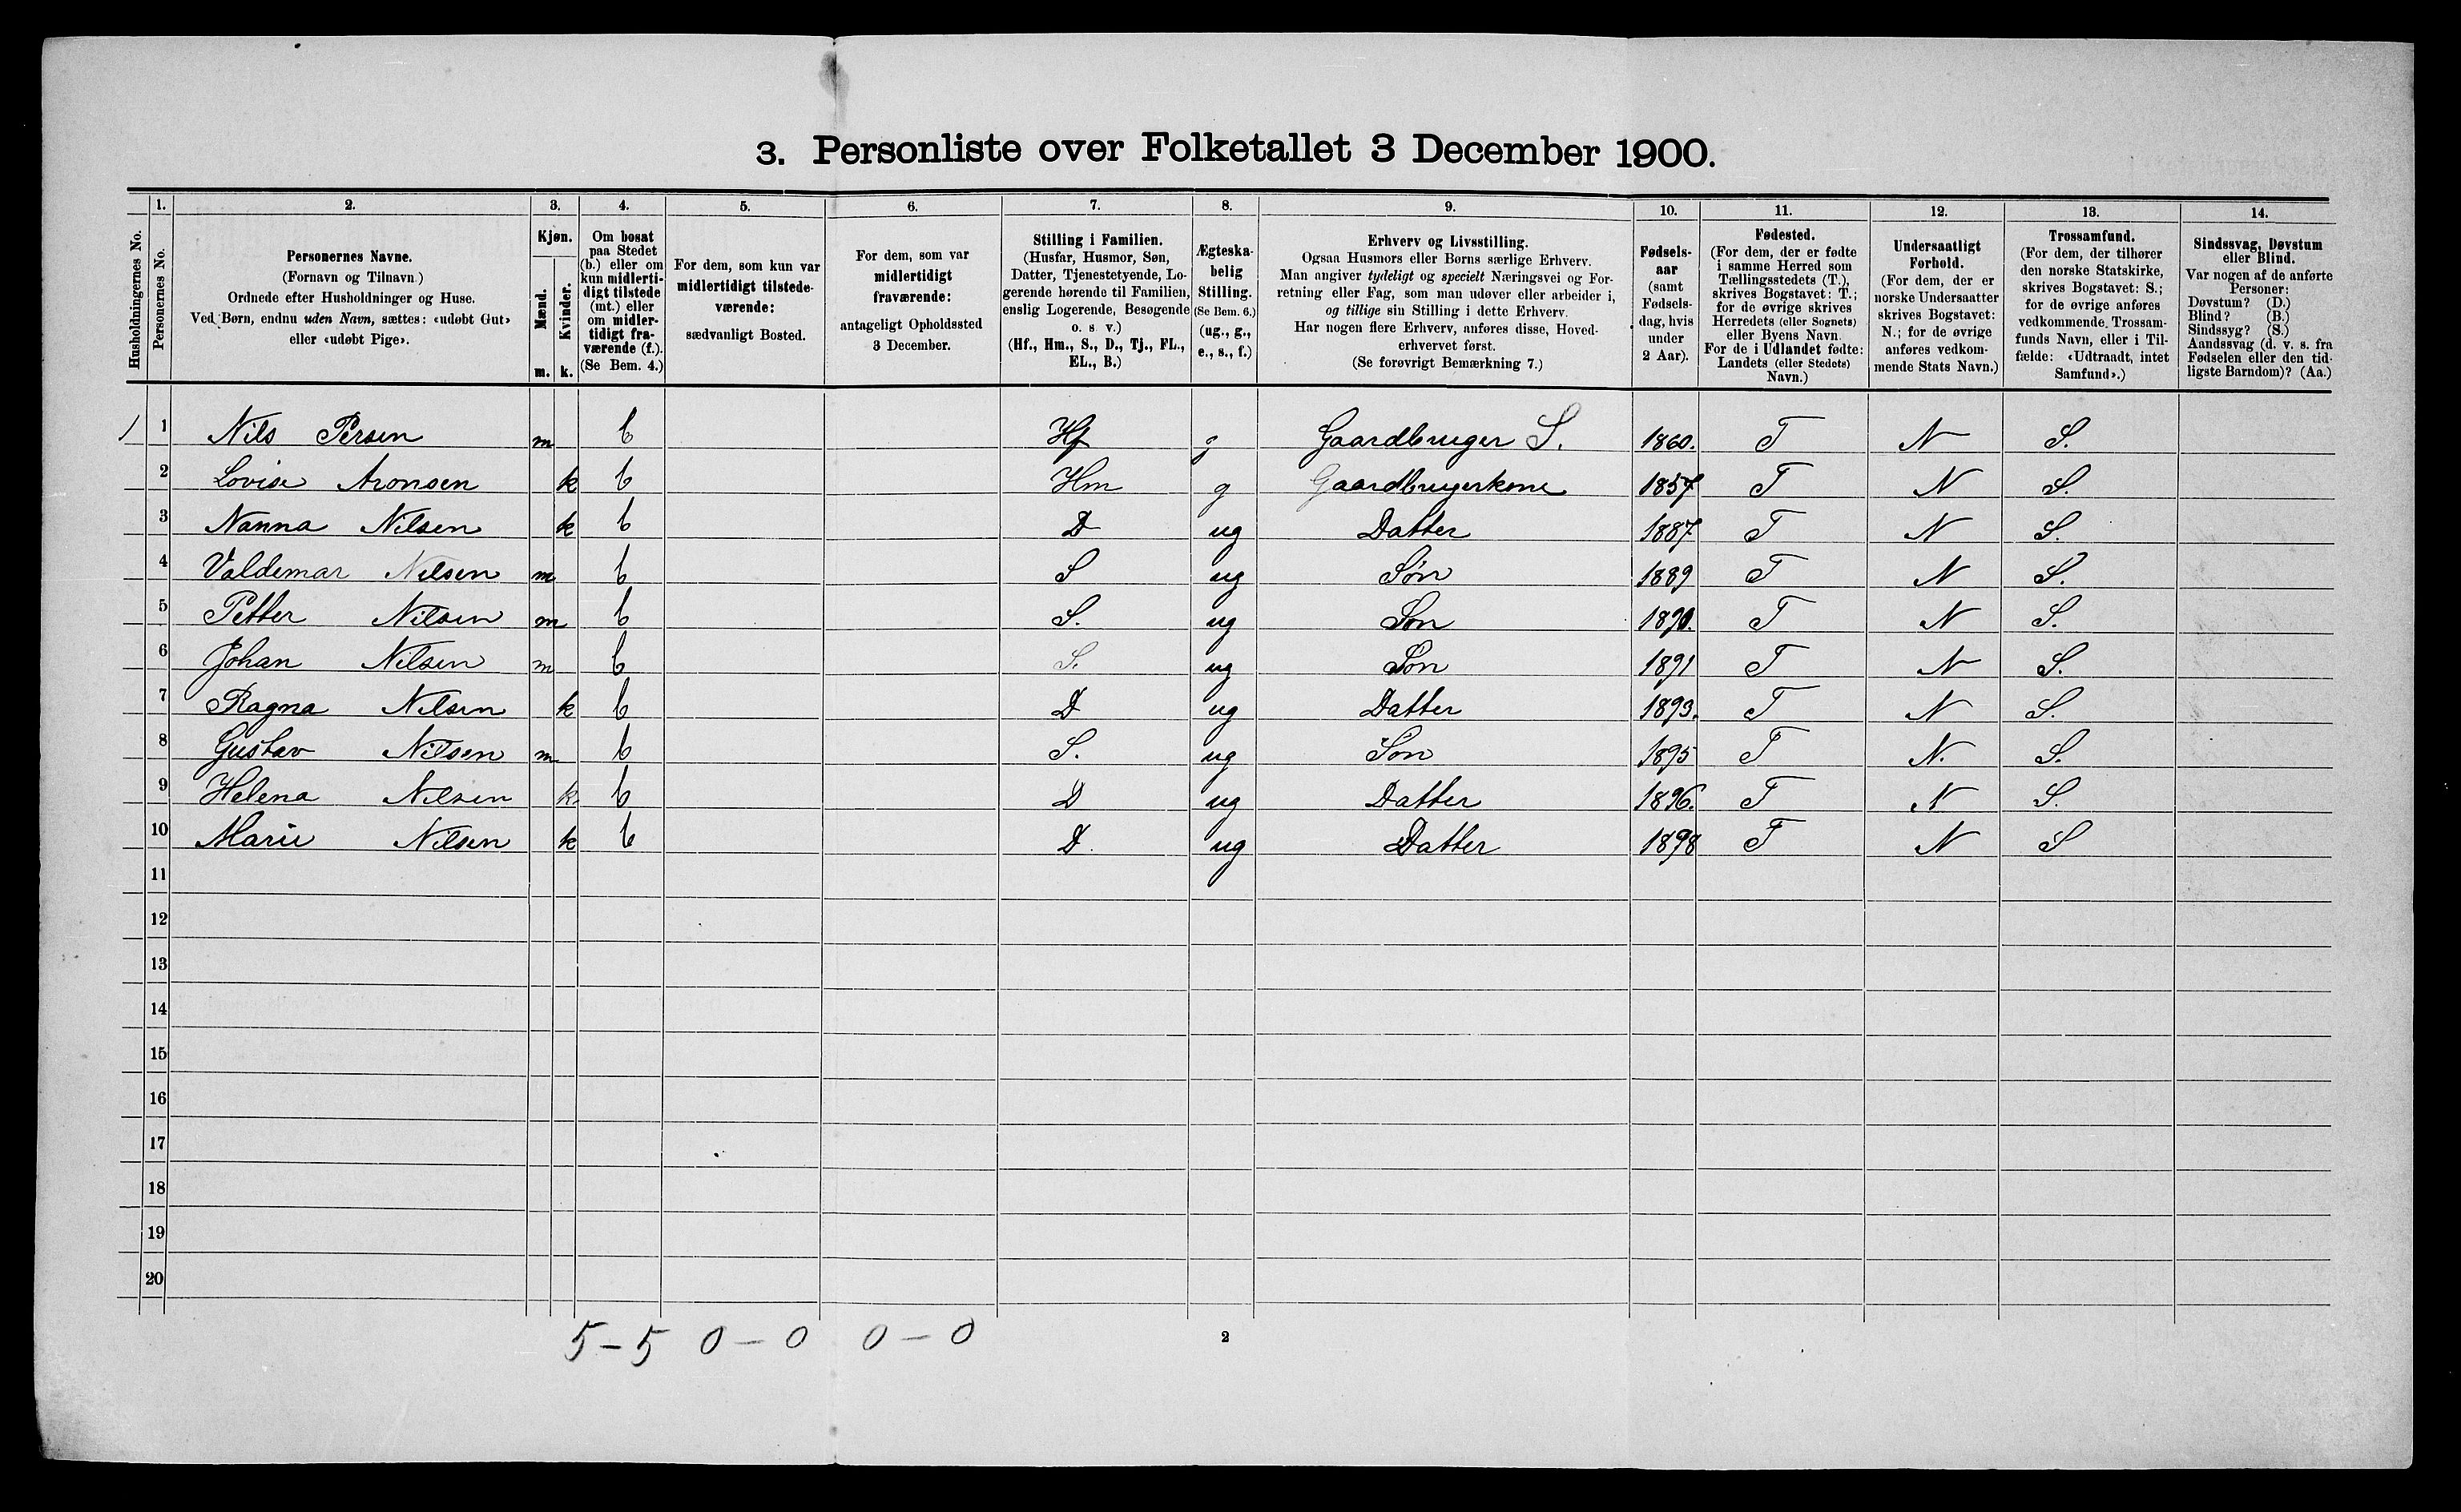 3. Personliste over Folketallet 3 December 1900.
1. 2. 3. 4. 5. 6. 7. 8. 9. 10. 11. 12. 13. 14.
Husholdningernes No.
Personernes No.
Personernes Navne.
(Fornavn og Tilnavn.)
Ordnede efter Husholdninger og Huse.
Ved Børn, endnu uden Navn, sættes: «udøbt Gut»
eller «udøbt Pige».
Kjøn.
Mænd.
Kvinder.
m. k.
Om bosat
paa Stedet
(b.) eller om
kun midlerti-
digt tilstede
(mt.) eller
om midler-
tidigt fra-
værende (f.).
(Se Bem. 4.)
For dem, som kun var
midlertidigt tilstede-
værende:
sædvanligt Bosted.
For dem, som var
midlertidigt
fraværende:
antageligt Opholdssted
3 December.
Stilling i Familien.
(Husfar, Husmor, Søn,
Datter, Tjenestetyende, Lo-
gerende hørende til Familien,
enslig Logerende, Besøgende
o. s. v.)
(Hf., Hm., S., D., Tj., FL.,
EL., B.)
Ægteska-
belig
Stilling.
(Se Bem. 6.)
(ug., g.,
e., s., f.)
Erhverv og Livsstilling.
Ogsaa Husmors eller Børns særlige Erhverv.
Man angiver tydeligt og specielt Næringsvei og For-
retning eller Fag, som man udøver eller arbeider i,
og tillige sin Stilling i dette Erhverv.
Har nogen flere Erhverv, anføres disse, Hoved-
erhvervet først.
(Se forøvrigt Bemærkning 7.)
Fødsels-
aar
(samt
Fødsels-
dag, hvis
under
2 Aar).
Fødested.
(For dem, der er fødte
i samme Herred som
Tællingsstedets (T.),
skrives Bogstavet: T.;
for de øvrige skrives
Herredets (eller Sognets)
eller Byens Navn.
For de i Udlandet fødte:
Landets (eller Stedets)
Navn.)
Undersaatligt
Forhold.
(For dem, der er
norske Undersaatter
skrives Bogstavet:
N.; for de øvrige
anføres vedkom-
mende Stats Navn.)
Trossamfund.
(For dem, der tilhører
den norske Statskirke,
skrives Bogstavet: S.;
for de øvrige anføres
vedkommende Trossam-
funds Navn, eller i Til-
fælde: «Udtraadt, intet
Samfund».)
Sindssvag, Døvstum
eller Blind.
Var nogen af de anførte
Personer:
Døvstum? (D.)
Blind? (B.)
Sindssyg? (S.)
Aandssvag (d. v. s. fra
Fødselen eller den tid-
ligste Barndom)? (Aa.)
1 1 Nils Persen m b Hf g Gaardbruger S. 1860. T N S.
2 Lovise Aronsen k b Hm g Gaardbrugerkone 1857 T N S.
3 Nanna Nilsen k b D ug Datter 1887 T N S.
4 Valdemar Nilsen m b S ug Søn 1889 T N S.
5 Petter Nilsen m b S. ug Søn 1890. T N S.
6 Johan Nilsen m b S. ug Søn 1891 T N S.
7 Ragna Nilsen k b D ug Datter 1893. T N S.
8 Gustav Nilsen m b S. ug Søn 1895 T N. S.
9 Helena Nilsen k. b D ug Datter 1896. T N S.
10 Marie Nilsen k b D. ug Datter 1898 T N S
11
12
13
14
15
16
17
18
19
20
5 – 5 0 – 0 0 – 0 2